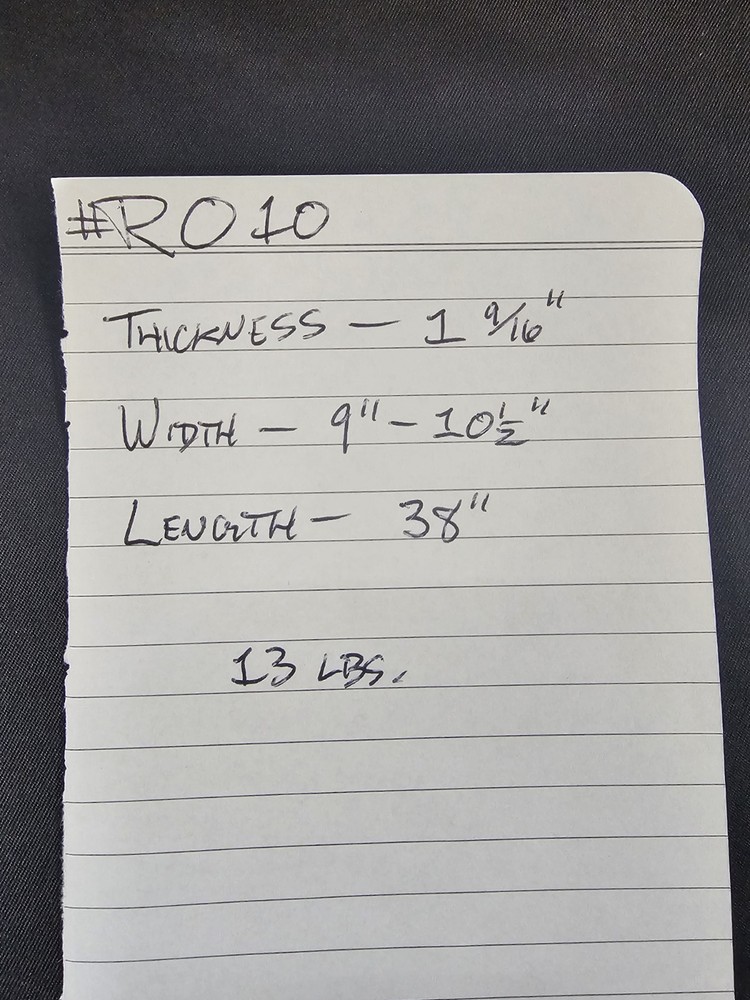 #RO10
THICKNESS - 1 9/16"
WIDTH - 9" - 10 1/2"
LENGTH - 38"
13 LBS.